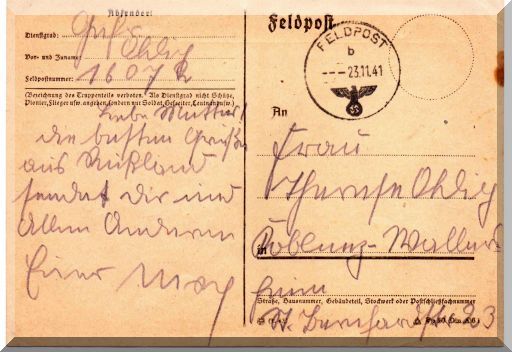 Absender:
Dienstgrad: Gefr.
Vor- und Zuname: Ohlig
Feldpostnummer: 1607
(Bezeichnung des Truppenteils verboten. Als Dienstgrad nicht Schütze,
Pionier, Flieger usw. angeben, sondern nur Soldat, Gefreiter, Leutnant usw.)
Liebe Mutter!
die besten Grüße
aus Rußland
sendet Dir und
Allen Anderen
Euer
Feldpost
FELDPOST
b
--- 23.11.41
An
Frau
Therese Ohlig
in Koblenz-Wallers
heim
Straße, Hausnummer, Gebäudeteil, Stockwerk oder Postschließfachnummer
St. Bernhardstr. 23